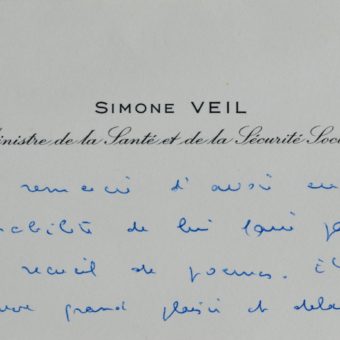 SIMONE VEIL
inistre de la Santé et de la Sécurité Soc
remercie d'avoir eu
abilité de lui faire
recueil de poemes.
grand plaisir et